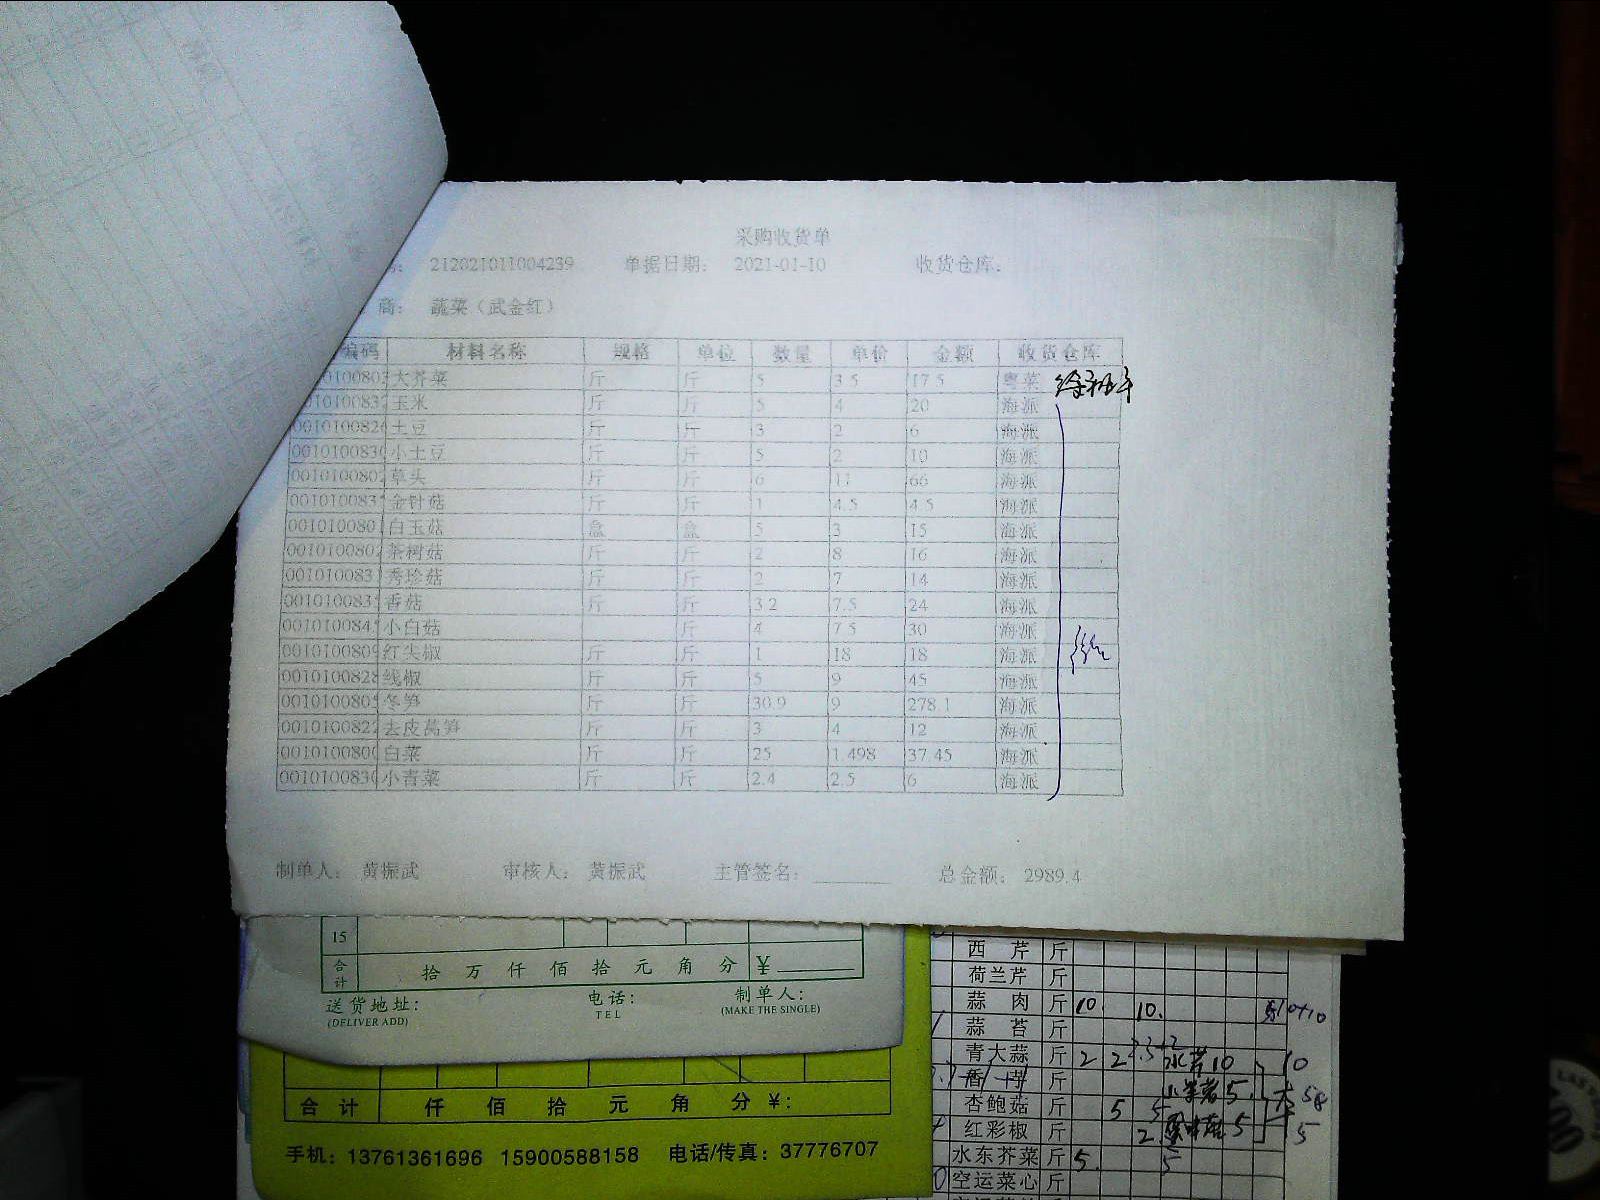 采购收货单
212021011004239 单据日期： 2021-01-10 收货仓库：
商： 蔬菜（武金红）
编码 材料名称 规格 单位 数量 单价 金额 收货仓库
大芥菜 斤 斤 5 3.5 17.5 粤菜
玉米 斤 斤 5 4 20 海派
土豆 斤 斤 3 2 6 海派
小土豆 斤 斤 5 2 10 海派
草头 斤 斤 6 11 66 海派
金针菇 斤 斤 1 4.5 4.5 海派
白玉菇 盒 盒 5 3 15 海派
茶树菇 斤 斤 2 8 16 海派
秀珍菇 斤 斤 2 7 14 海派
香菇 斤 斤 3.2 7.5 24 海派
小白菇 斤 4 7.5 30 海派
红尖椒 斤 斤 1 18 18 海派
线椒 斤 斤 5 9 45 海派
冬笋 斤 斤 30.9 9 278.1 海派
去皮莴笋 斤 斤 3 4 12 海派
白菜 斤 斤 25 1.498 37.45 海派
小青菜 斤 斤 2.4 2.5 6 海派
制单人： 黄振武 审核人： 黄振武 主管签名： 总金额： 2989.4
15
合计 拾 万 仟 佰 拾 元 角 分 ¥
送货地址： 电话： 制单人：
(DELIVER ADD) TEL (MAKE THE SINGLE)
合计 仟 佰 拾 元 角 分 ¥：
手机：13761361696 15900588158 电话/传真：37776707
西芹 斤
荷兰芹 斤
蒜肉 斤 10. 10.
蒜苔 斤
青大蒜 斤 2 2 水芹10 10
香芋 斤
杏鲍菇 斤 5 5
红彩椒 斤 2 5 5
水东芥菜 斤 5. 5
空运菜心 斤